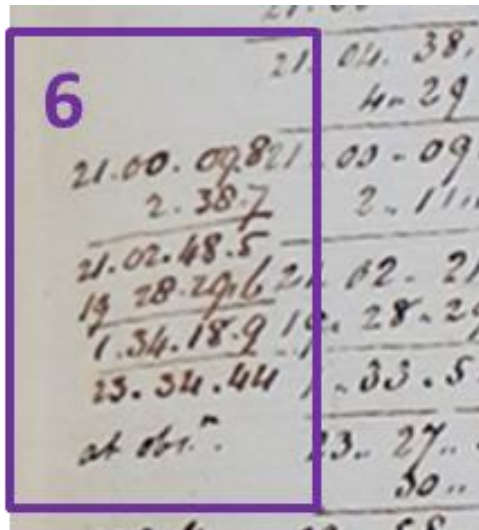 6
21.00.09.8
2.38.7
21.02.48.5
19 28.29.6
1.34.18.9
23.34.44
at obs.n.
21. 04. 38.
4.. 29
21.00-09
2..11.
21 02. 21
19.28-29
1..33.5
23.. 27..
30..